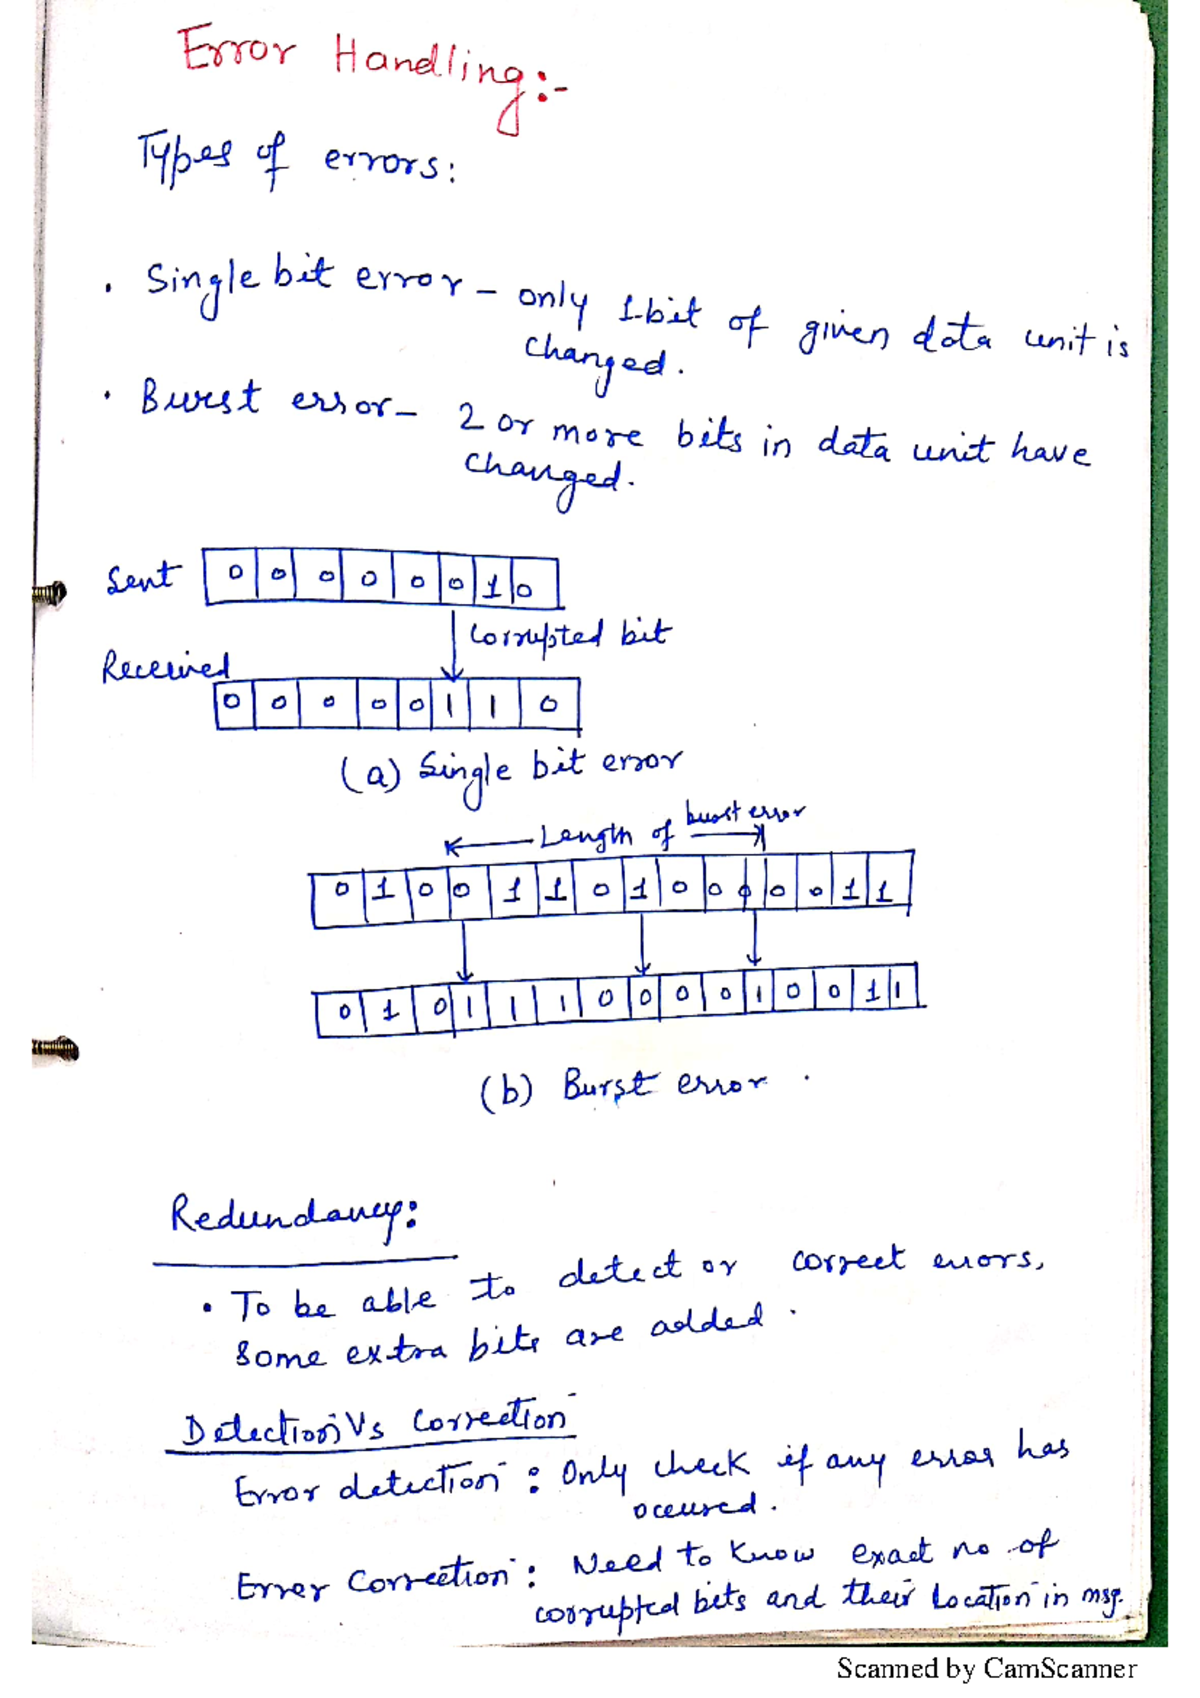 Error Handling:-
Types of errors:
• Single bit error - only 1-bit of given data unit is
changed.
• Burst error - 2 or more bits in data unit have
changed.
Sent 0 0 0 0 0 0 1 0
Corrupted bit
Received
0 0 0 0 0 1 1 0
(a) Single bit error
Length of burst error
0 1 0 0 1 1 0 1 0 0 0 0 0 1 1
0 1 0 1 1 1 0 0 0 0 1 0 0 1 1
(b) Burst error.
Redundancy:
• To be able to detect or correct errors,
some extra bits are added.
Detection Vs Correction
Error detection: Only check if any error has
occured.
Error Correction: Need to know exact no of
corrupted bits and their location in msg.
Scanned by CamScanner